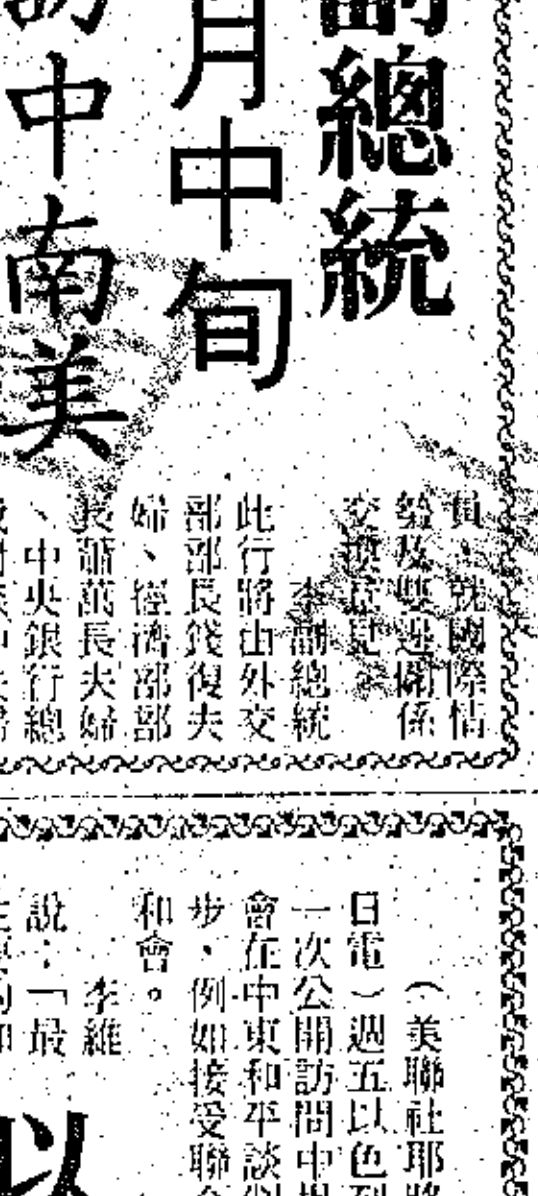 副總統
月中旬
訪中南美
員、就國際情
勢及雙邊關係
交換意見。
李副總統
此行將由外交
部部長錢復夫
婦、經濟部部
長蕭萬長夫婦
、中央銀行總
（美聯社耶
日電）週五以色列
一次公開訪問中
會在中東和平談
步，例如接受聯
和會。
李維
說：「最
以